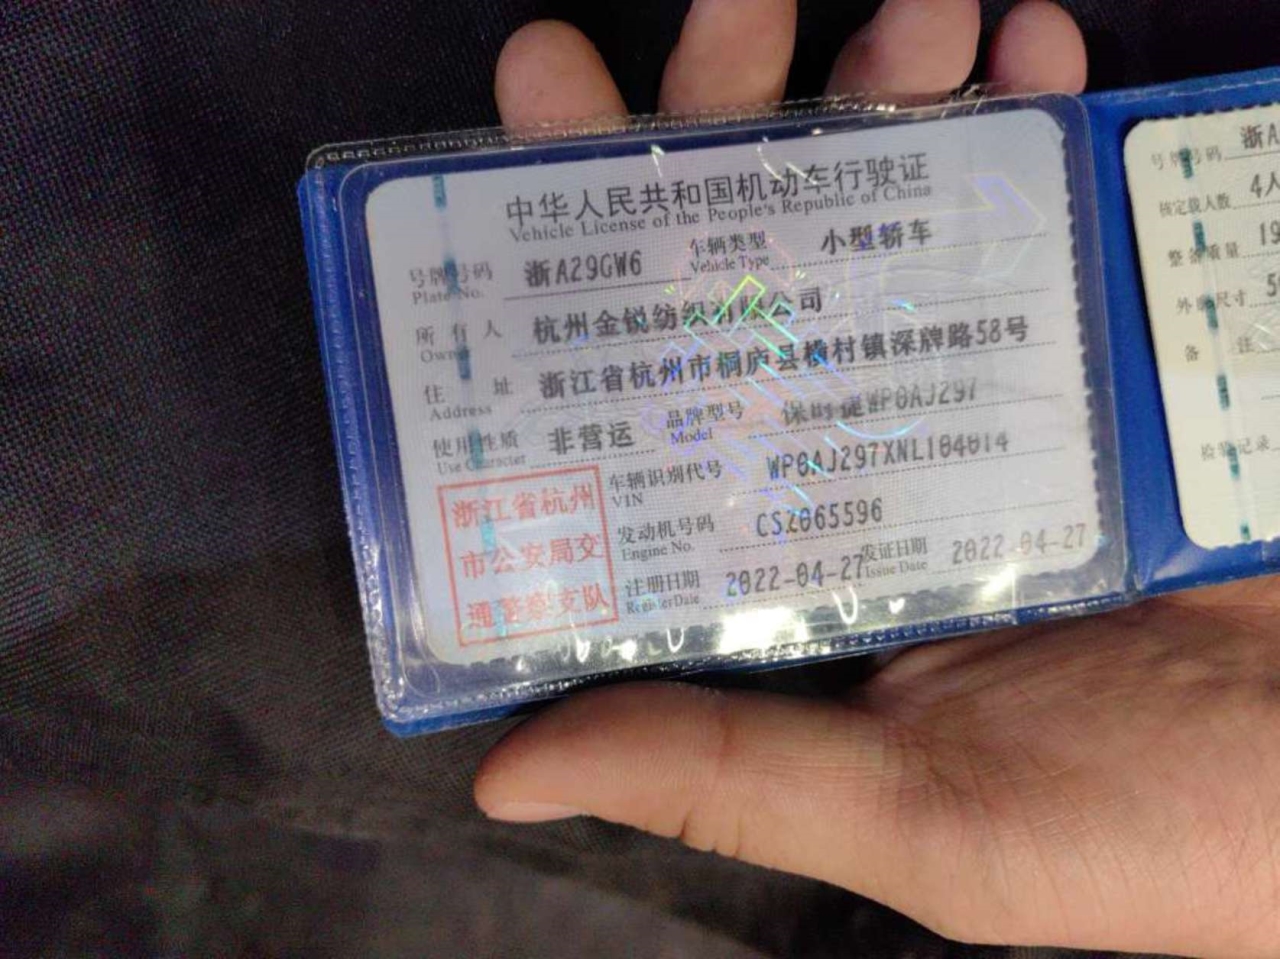 中华人民共和国机动车行驶证
Vehicle License of the People's Republic of China
号牌号码 浙A29GW6 车辆类型 小型轿车
Plate No. Vehicle Type
所有人 杭州金锐纺织有限公司
Owner
住址 浙江省杭州市桐庐县横村镇深牌路58号
Address
使用性质 非营运 品牌型号 保时捷WP0AJ297
Use Character Model
车辆识别代号 WP0AJ297XNL104014
VIN
发动机号码 CSZ065596
Engine No.
注册日期 2022-04-27 发证日期 2022-04-27
Register Date Issue Date
浙江省杭州
市公安局交
通警察支队
号牌号码 浙A
核定载人数 4人
整备质量 19
外廓尺寸 5
备注
检验记录